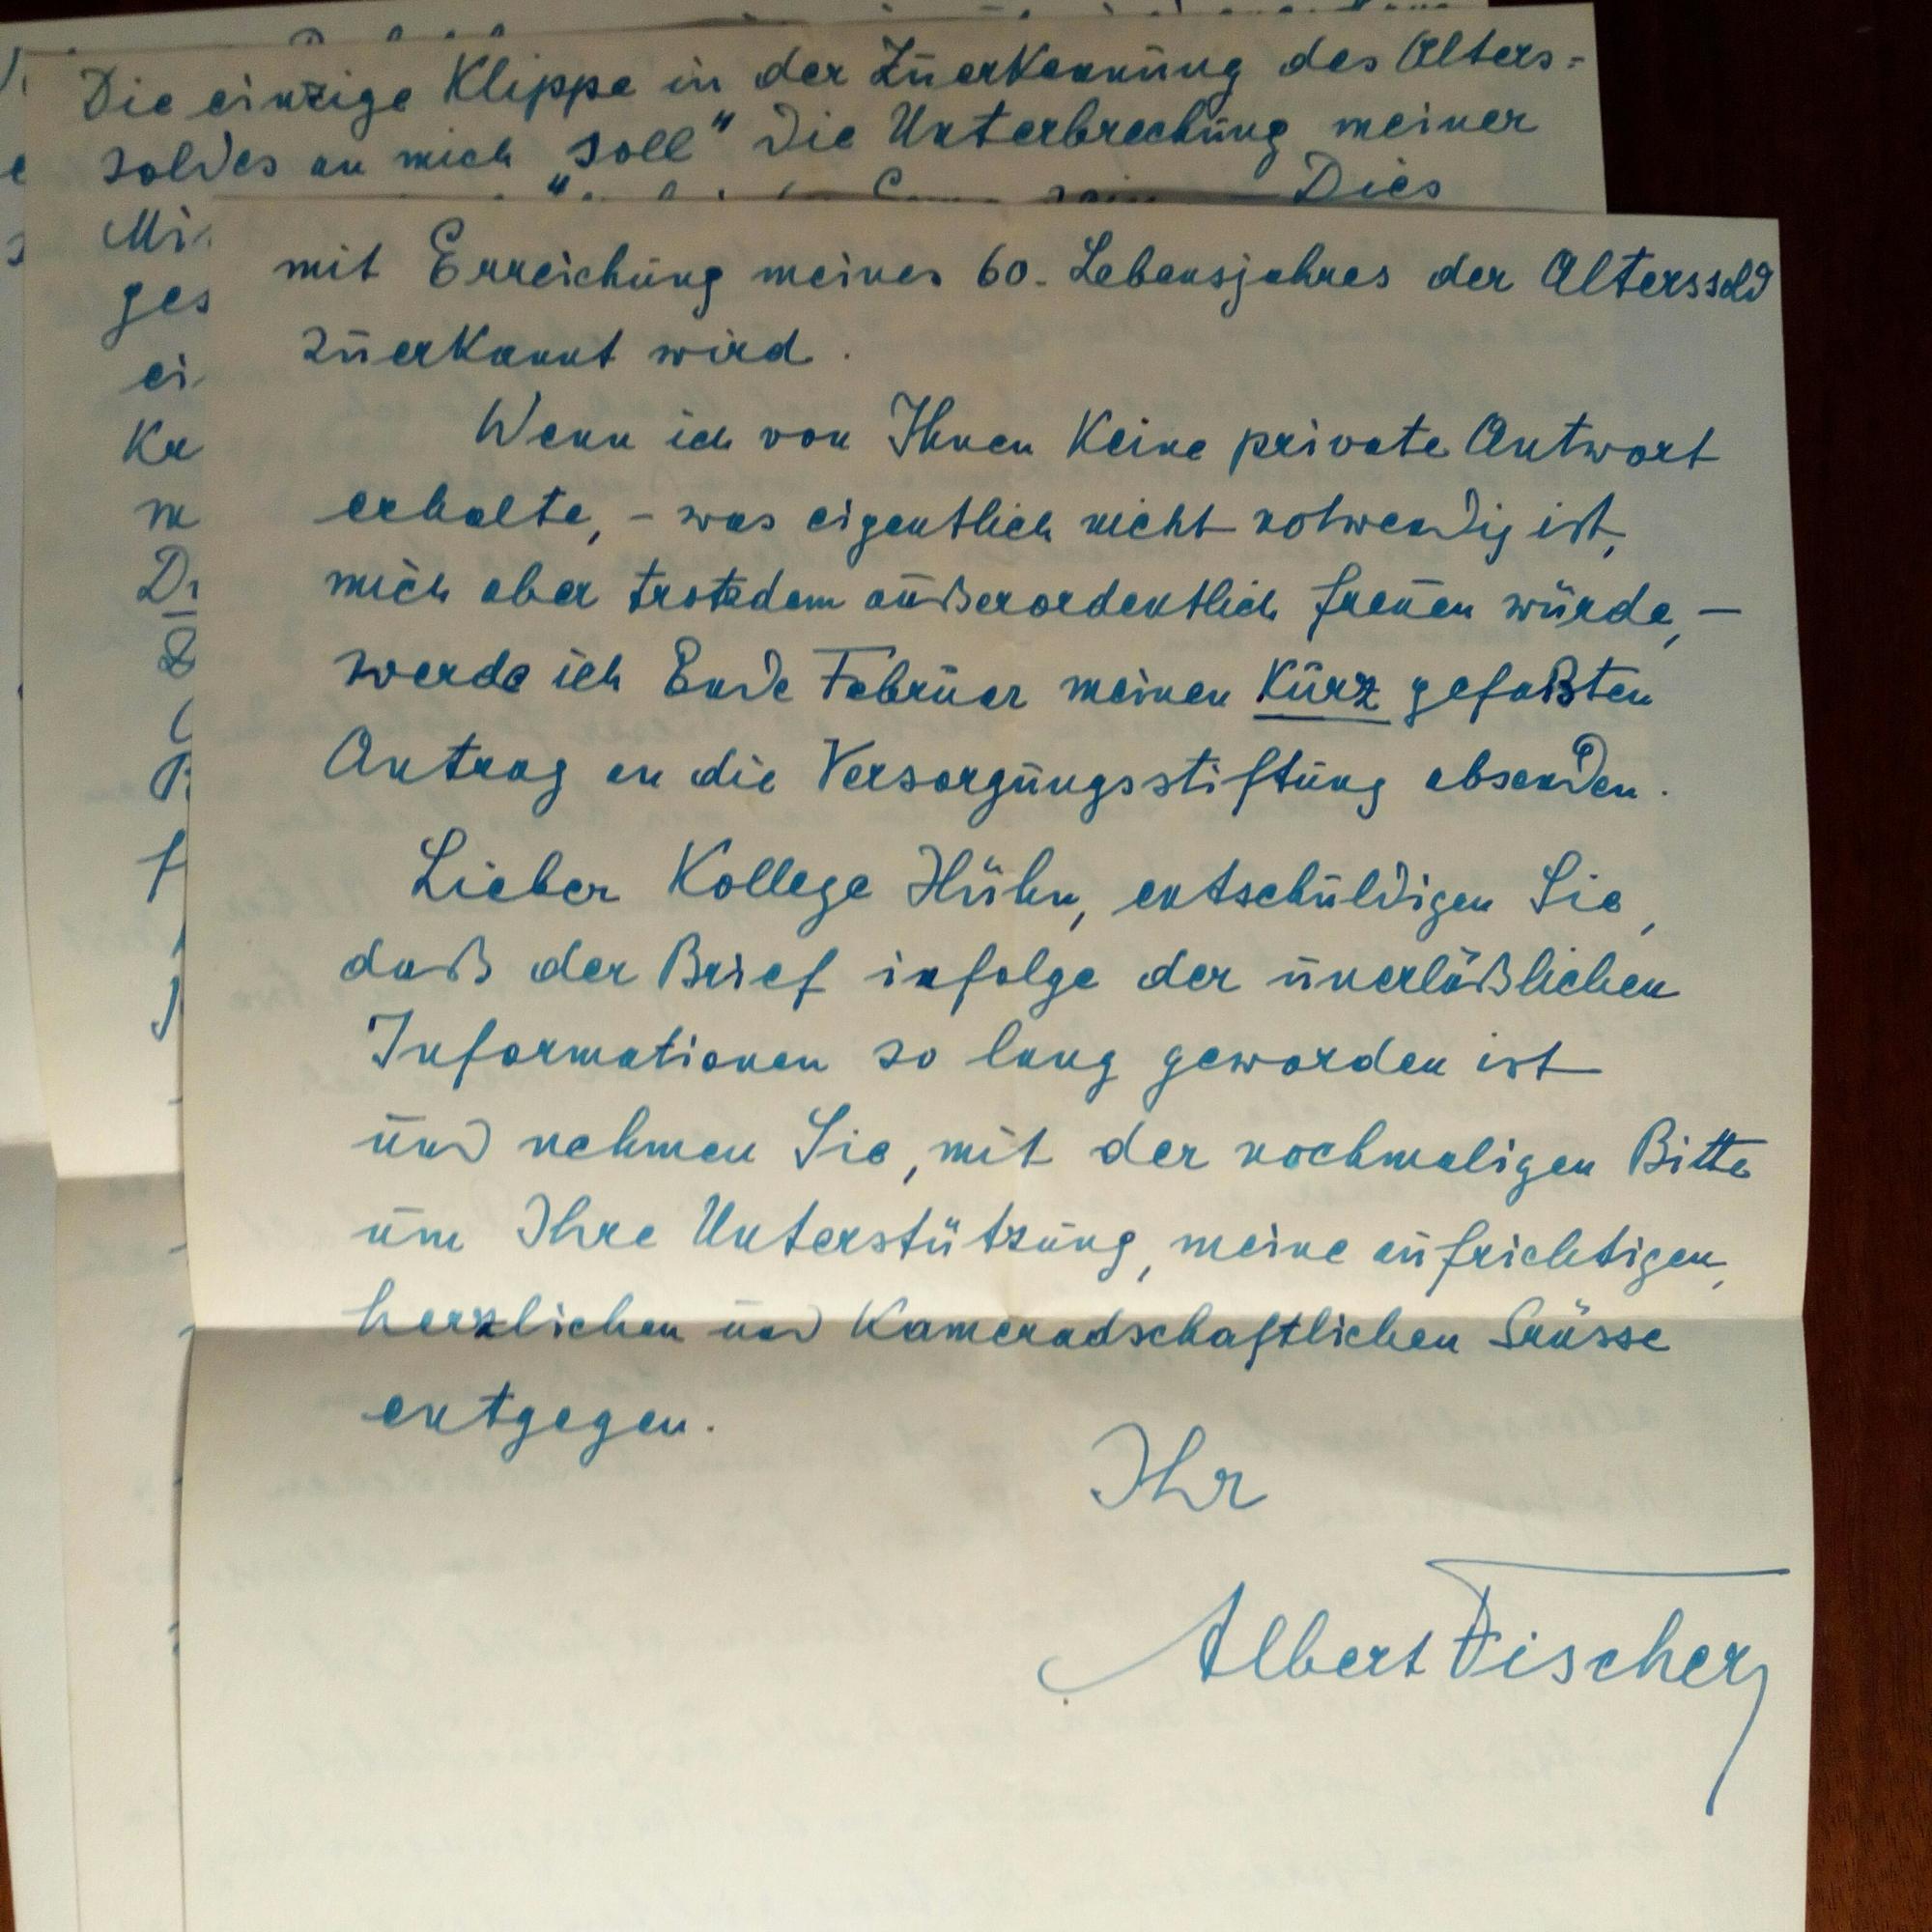 Die einzige Klippe in der Zuerkennung des Alters-
soldes an mich "soll" die Unterbrechung meiner
Dies
Mi
ges
ei
Ka
m
mit Erreichung meines 60. Lebensjahres der Alterssold
zuerkannt wird.
Wenn ich von Ihnen keine private Antwort
erhalte, - was eigentlich nicht notwendig ist,
mich aber trotzdem außerordentlich freuen würde, -
werde ich Ende Februar meinen kurz gefaßten
Antrag an die Versorgungsstiftung absenden.
Lieber Kollege Hühn, entschuldigen Sie,
daß der Brief infolge der unerläßlichen
Informationen so lang geworden ist
und nehmen Sie, mit der nochmaligen Bitte
um Ihre Unterstützung, meine aufrichtigen,
herzlichen und kameradschaftlichen Grüsse
entgegen.
Ihr
Albert Fischer